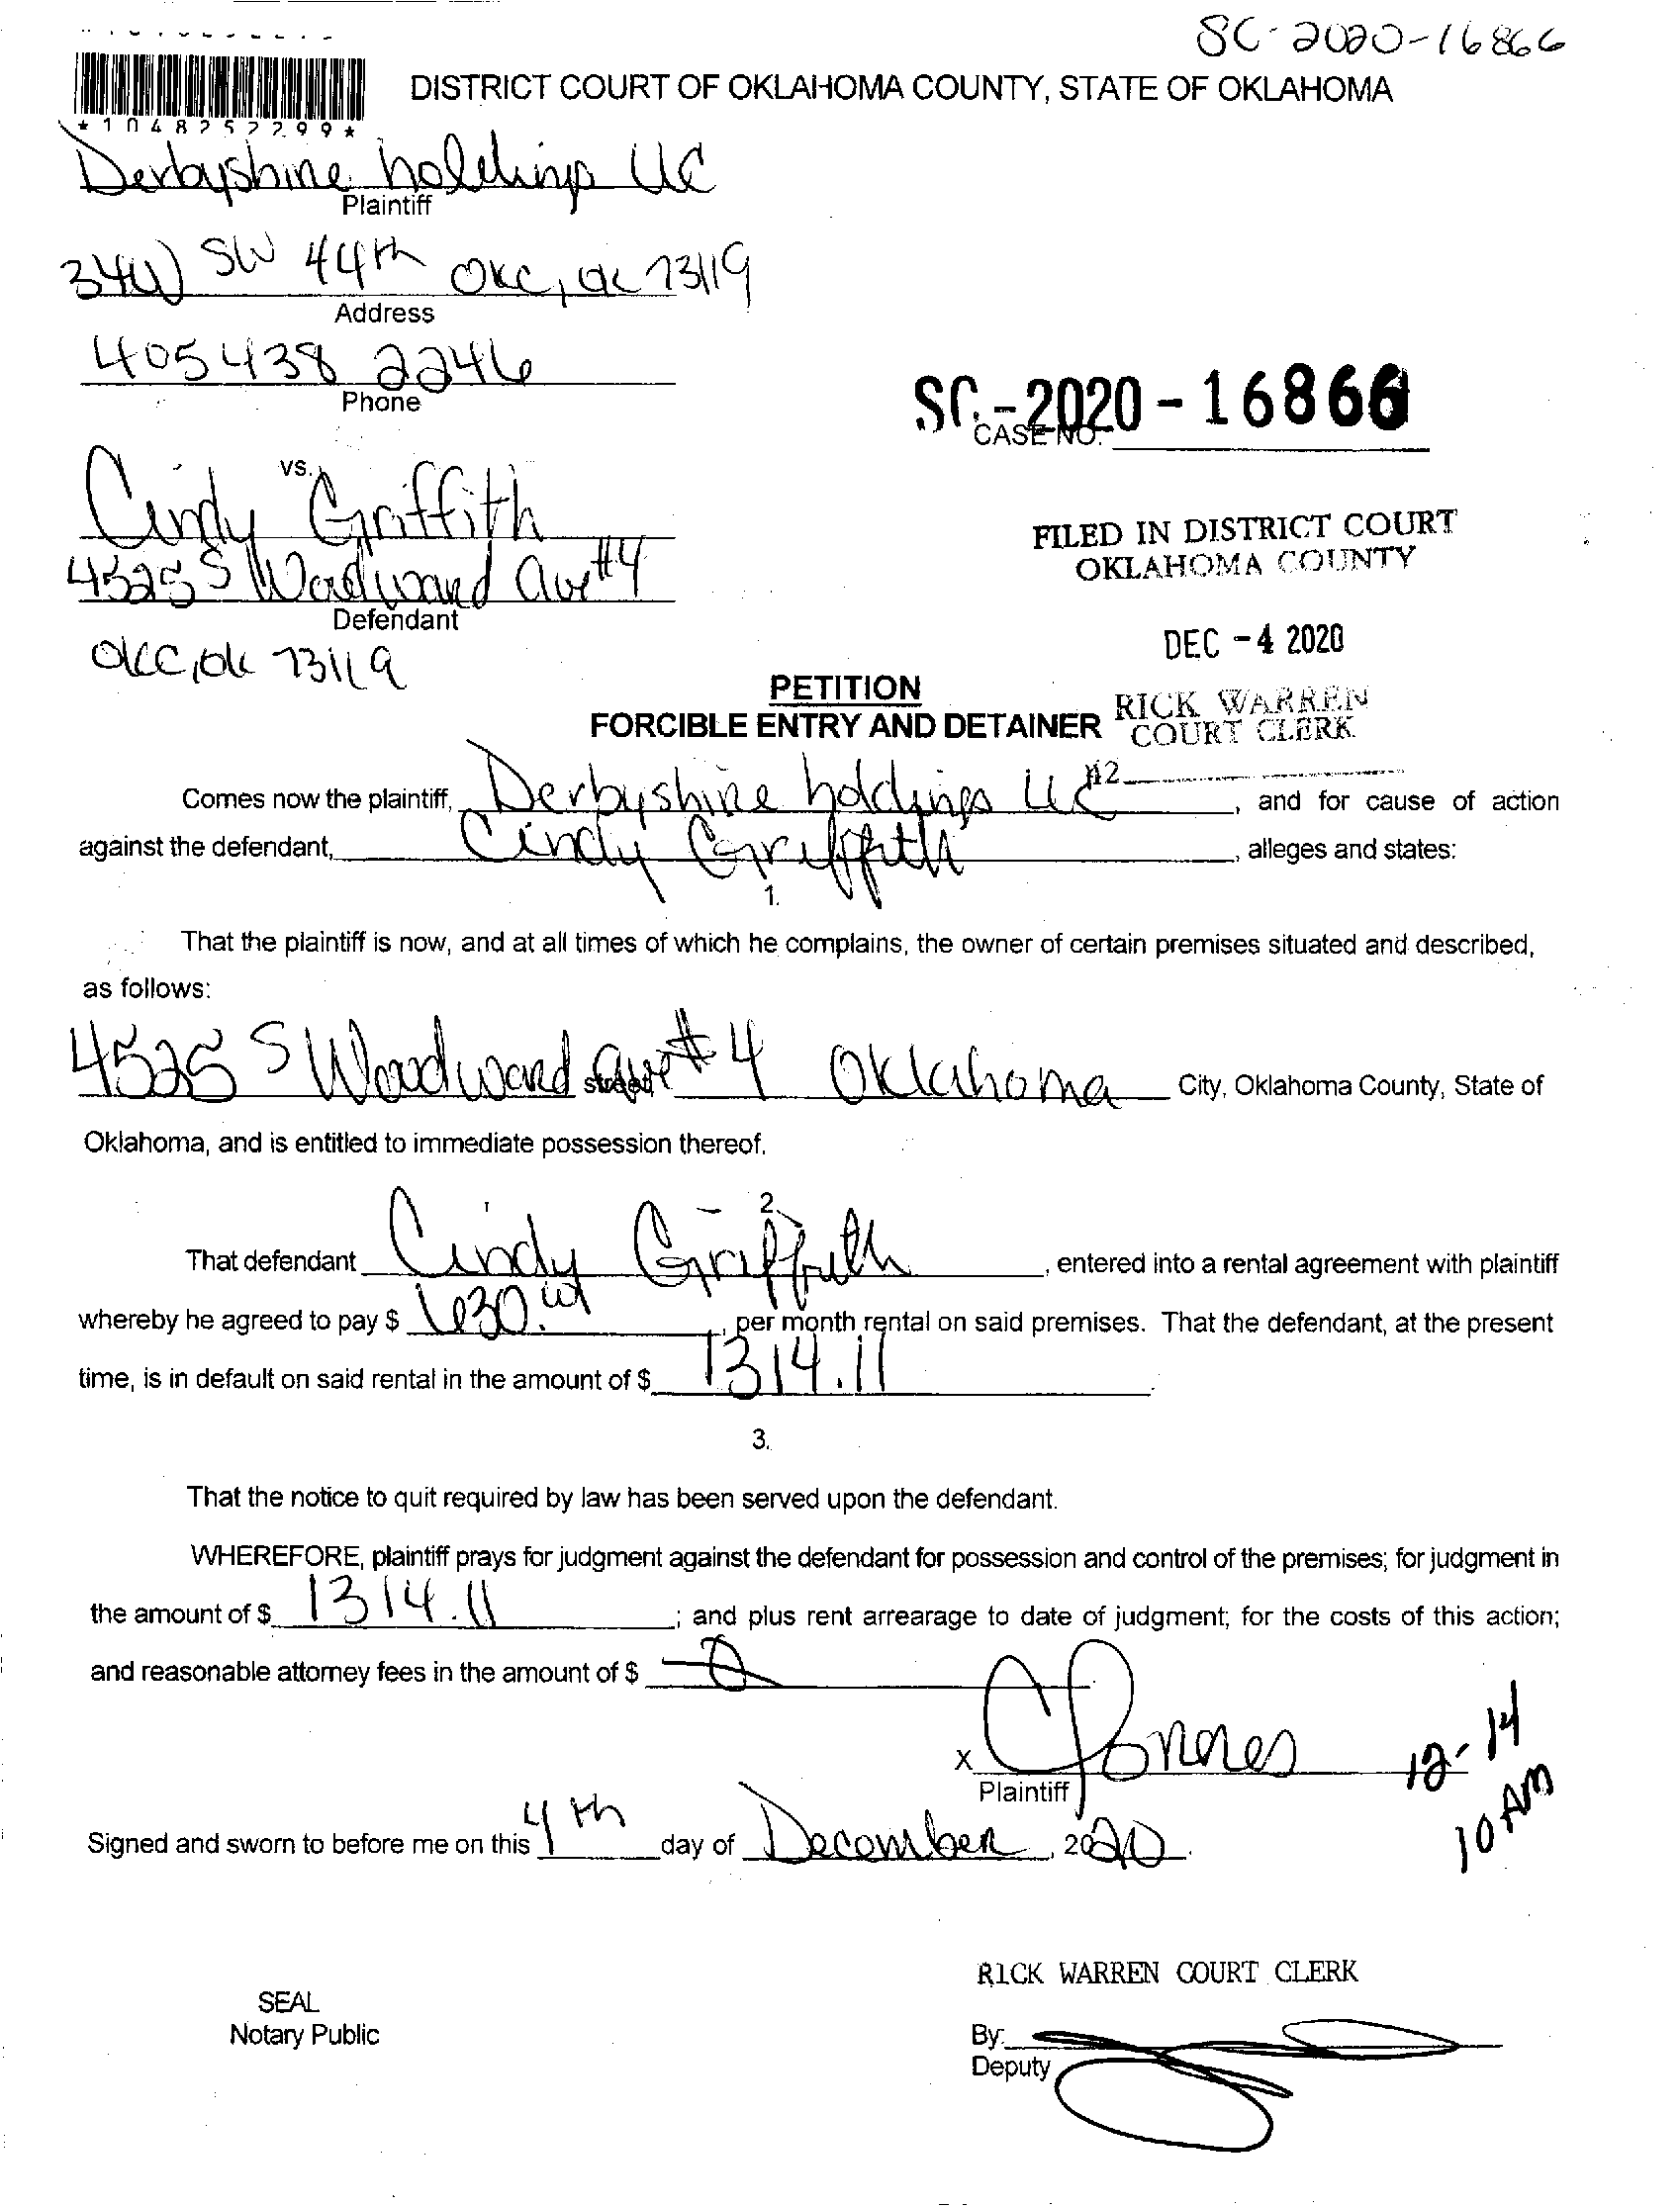 SC-2020-16866
DISTRICT COURT OF OKLAHOMA COUNTY, STATE OF OKLAHOMA
*1048252299*
Derbyshire holdings LLC
Plaintiff
3400 SW 44th OKC, OK 73119
Address
405 438 2246
Phone
SC-2020-16866
CASE NO.
vs.
Cindy Griffith
4525 S Woodward Ave #4
Defendant
OKC, OK 73119
FILED IN DISTRICT COURT
OKLAHOMA COUNTY
DEC -4 2020
RICK WARREN
COURT CLERK
#2
PETITION
FORCIBLE ENTRY AND DETAINER
Comes now the plaintiff, Derbyshire holdings LLC, and for cause of action
against the defendant, Cindy Griffith, alleges and states:
1.
That the plaintiff is now, and at all times of which he complains, the owner of certain premises situated and described,
as follows:
4525 S Woodward Ave #4 street Oklahoma City, Oklahoma County, State of
Oklahoma, and is entitled to immediate possession thereof.
2.
That defendant Cindy Griffith, entered into a rental agreement with plaintiff
whereby he agreed to pay $ 630.00, per month rental on said premises. That the defendant, at the present
time, is in default on said rental in the amount of $ 1314.11.
3.
That the notice to quit required by law has been served upon the defendant.
WHEREFORE, plaintiff prays for judgment against the defendant for possession and control of the premises; for judgment in
the amount of $ 1314.11; and plus rent arrearage to date of judgment; for the costs of this action;
and reasonable attorney fees in the amount of $
X
Plaintiff
12-14
10 AM
Signed and sworn to before me on this 4th day of December, 2020.
RICK WARREN COURT CLERK
SEAL
Notary Public
By:
Deputy